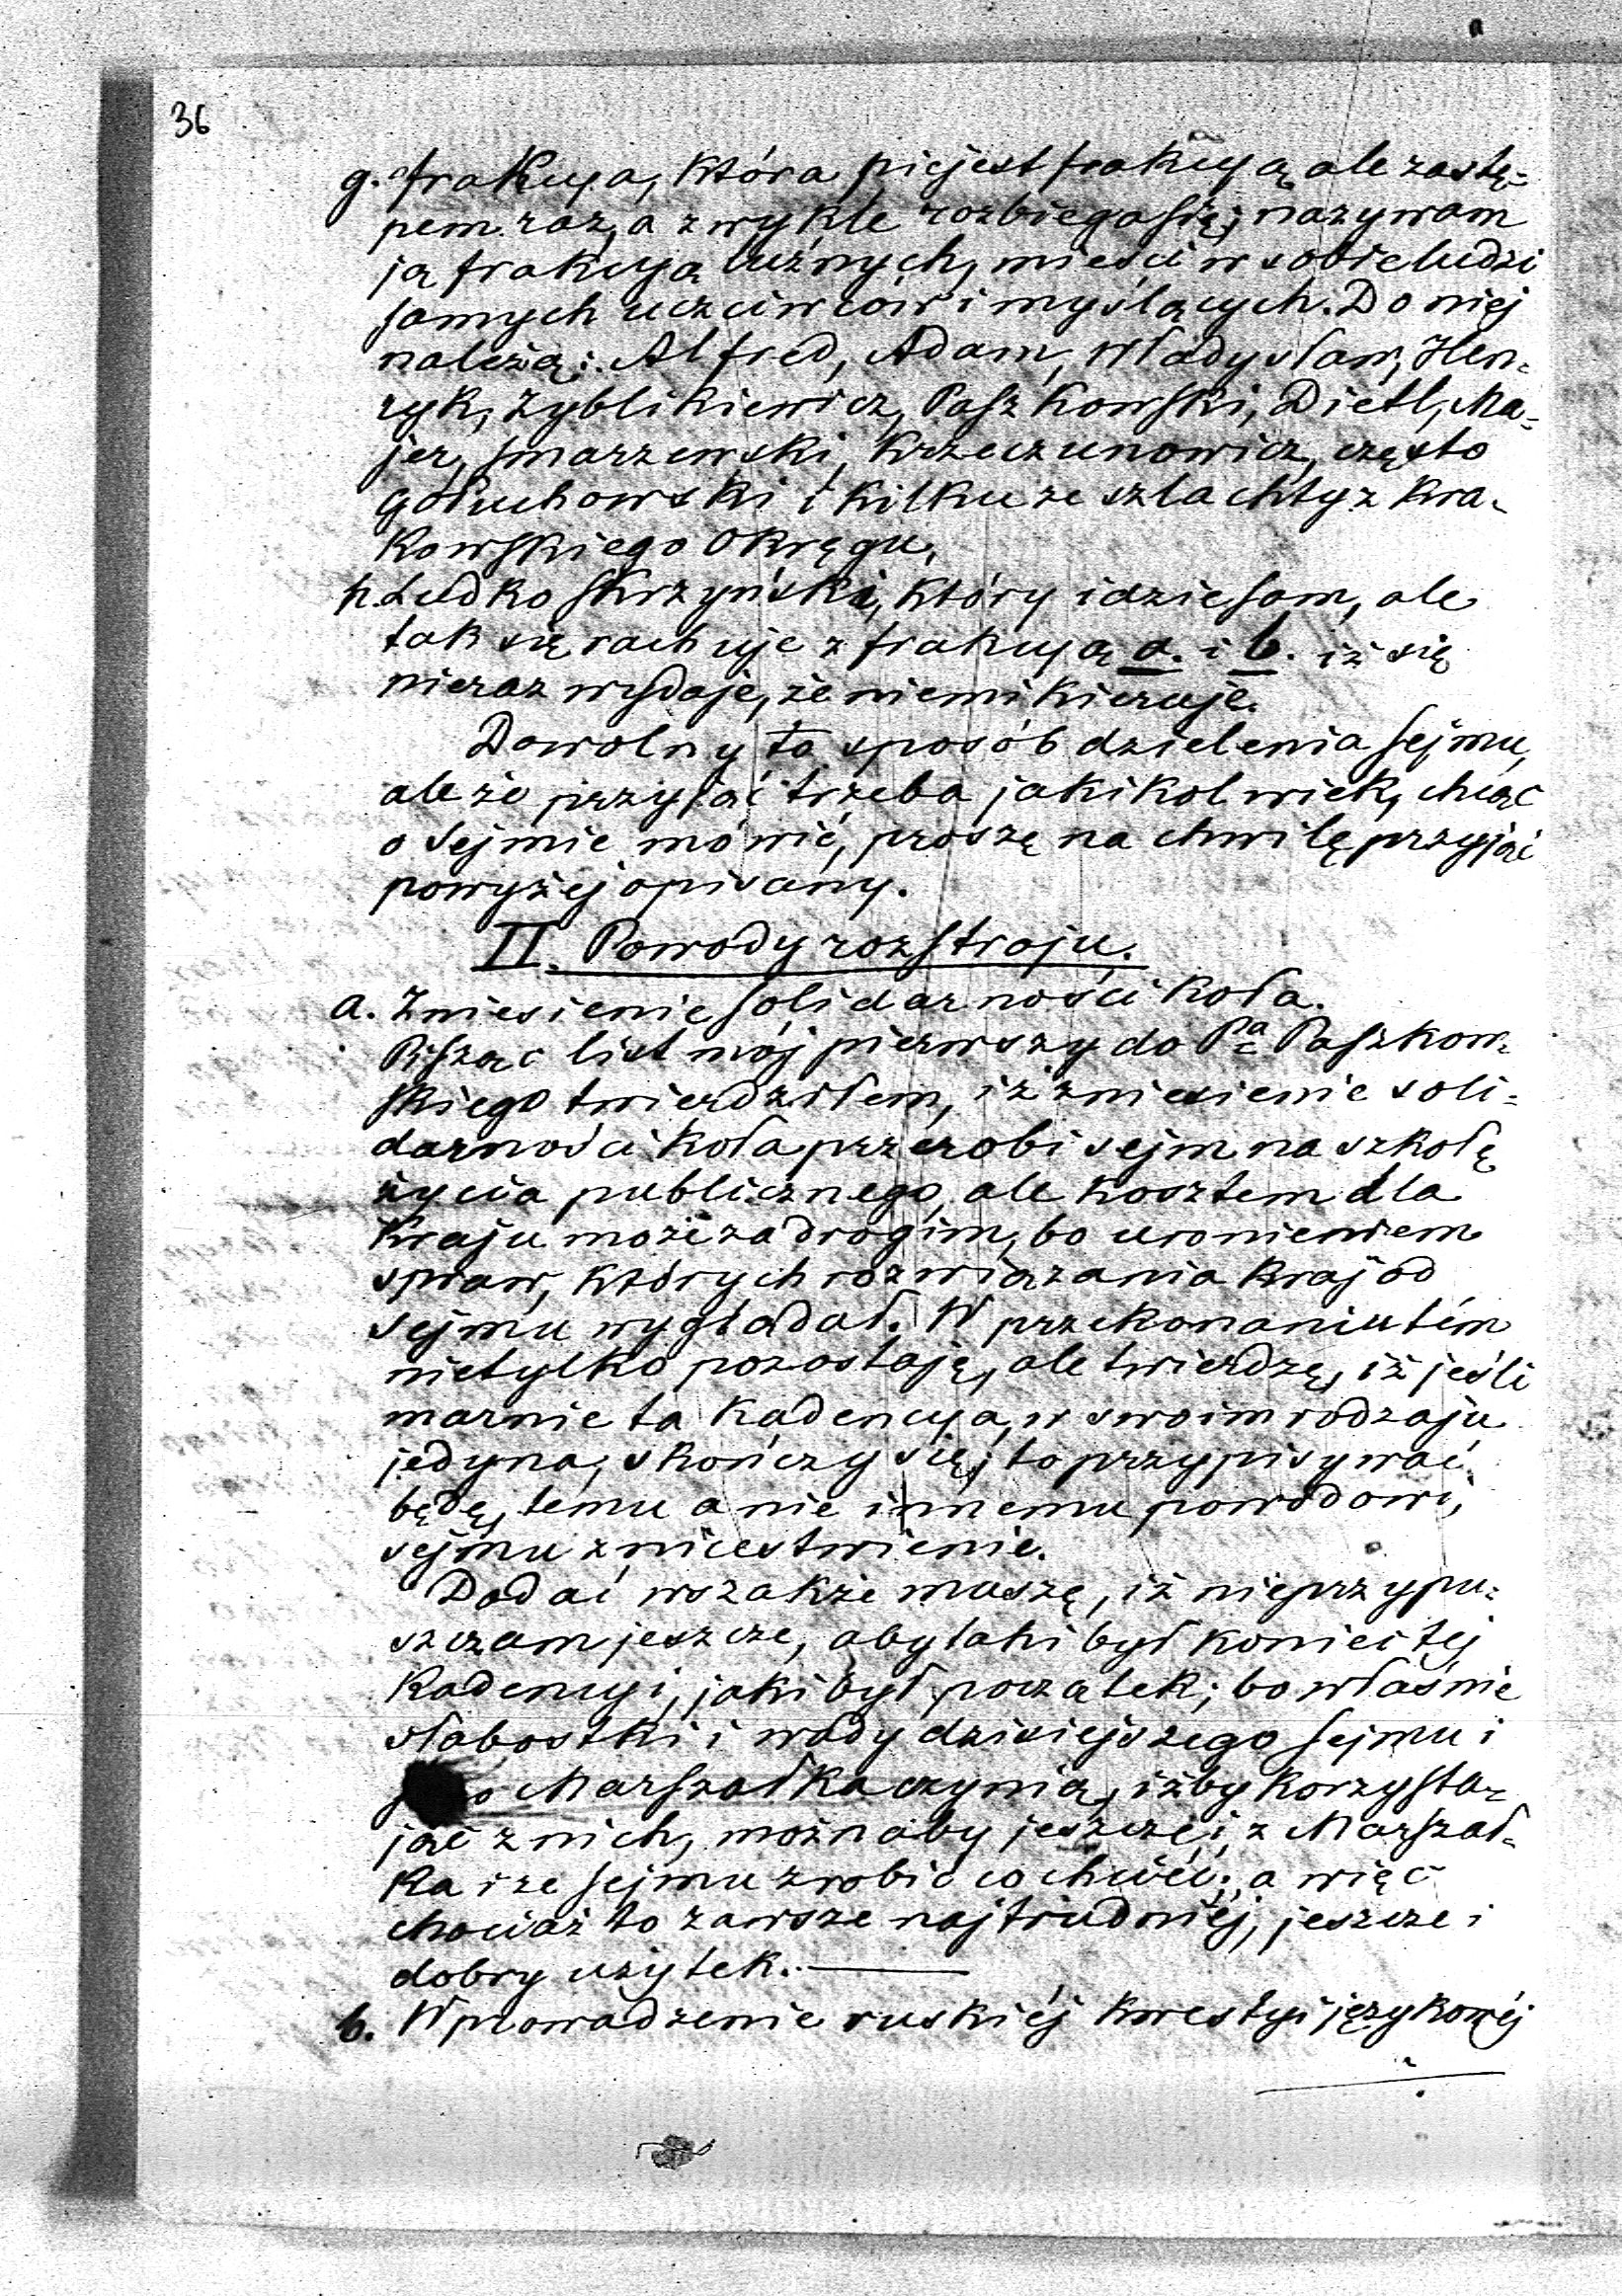 36
g. frakcya, która niejest frakcyą ale zastę-
pem raz, a zwykle rozbiega się; nazywam
ją frakcyą luźnych, mieści w sobie ludzi
samych uczciwców i myślących. Do niej
należą: Alfred, Adam, Władysław, Hen-
ryk, Zyblikiewicz, Paszkowski, Dietl, Ma-
jer, Smarzewski, Krzeczunowicz, często
Gołuchowski i kilku ze szlachty z Kra-
kowskiego Okręgu,
h. Ludko Skrzyński, który idzie sam, ale
tak się rachuje z frakcyą a. i b. iż się
nieraz wydaje, że niemi kieruje.
Dowolny to sposób dzielenia sejmu,
ale że przyjąć trzeba jakikolwiek, chcąc
o Sejmie mówić, proszę na chwilę przyjąć
powyżej opisany.
II. Powody rozstroju.
a. Zniesienie solidarności koła.
Pisząc list mój pierwszy do Pa Paszkow-
skiego twierdziłem, iż zniesienie soli-
darności koła przerobi sejm na szkołę
życia publicznego, ale kosztem dla
Kraju może za drogim, bo uronieniem
spraw, których rozwiązania Kraj od
Sejmu wyglądał. W przekonaniu tém
nietylko pozostaję, ale twierdzę, iż jeśli
marnie ta Kadencya, w swoim rodzaju
jedyna, skończy się; to przypisywać
będę, temu a nie innemu powodowi,
sejmu znicestwienie.
Dodać wszakże muszę, iż nieprzypu-
szczam jeszcze, aby taki był koniec tej
Kadencyi, jaki był początek; bo właśnie
słabostki i wady dzisiejszego Sejmu i
Marszałka czynią, iżby korzysta-
jąc z nich, możnaby jeszcze i z Marszał-
ka i ze sejmu zrobić co chcieć; a więc
chociaż to zawsze najtrudniéj, jeszcze i
dobry użytek.
b. Wprowadzenie ruskiéj kwestyi językowéj